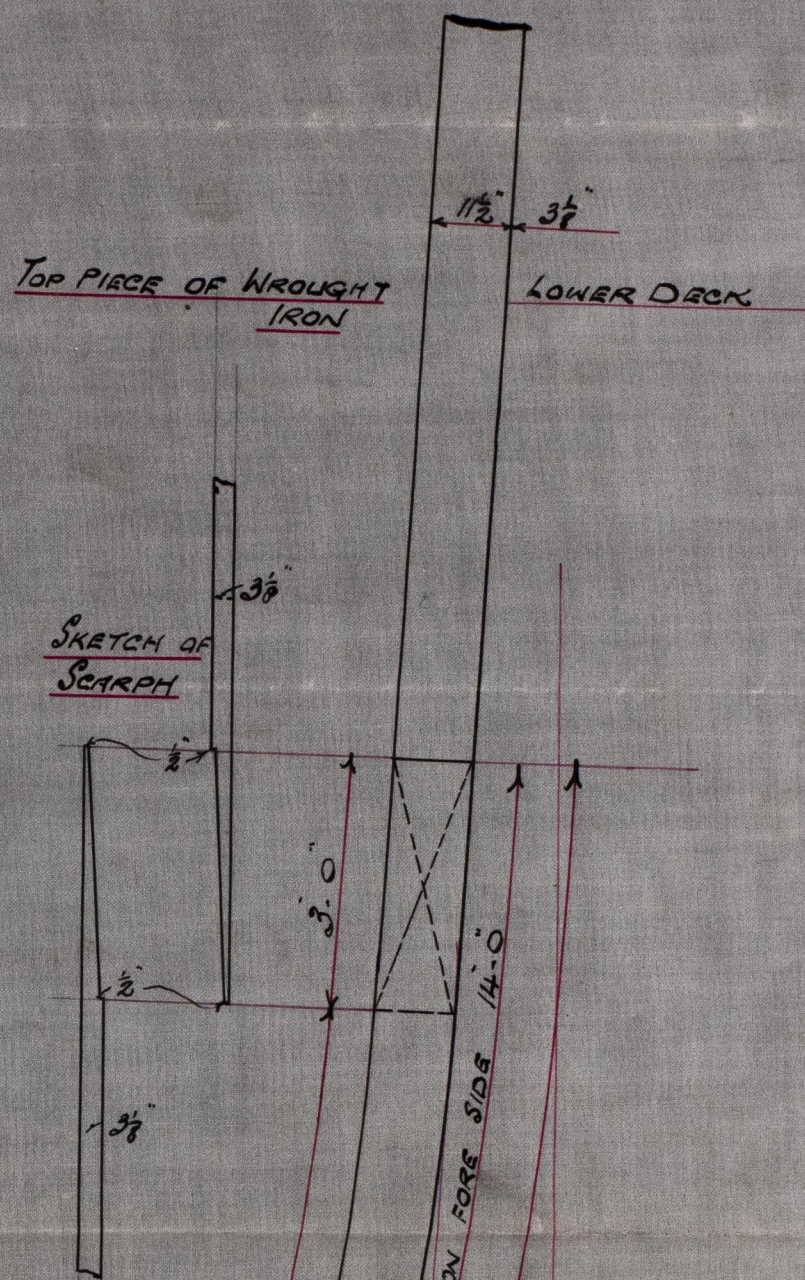 11½" 3⅛"
TOP PIECE OF WROUGHT
IRON
LOWER DECK
3⅛"
SKETCH OF
SCARPH
½"
3'-0"
½"
14'-0"
ON FORE SIDE
3⅛"